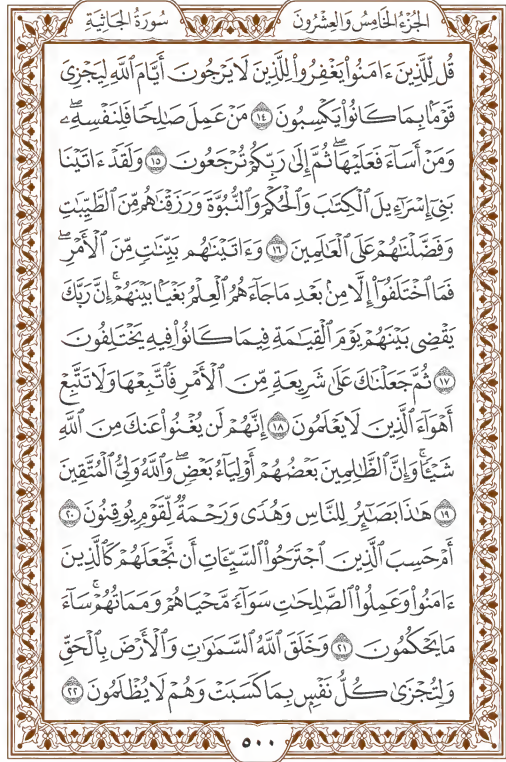 الجُزْءُ الخَامِسُ وَالعِشْرُونَ سُورَةُ الجَاثِيَةِ
قُل لِّلَّذِينَ ءَامَنُوا۟ يَغْفِرُوا۟ لِلَّذِينَ لَا يَرْجُونَ أَيَّامَ ٱللَّهِ لِيَجْزِىَ
قَوْمًۢا بِمَا كَانُوا۟ يَكْسِبُونَ ١٤ مَنْ عَمِلَ صَٰلِحًا فَلِنَفْسِهِۦۖ
وَمَنْ أَسَآءَ فَعَلَيْهَاۖ ثُمَّ إِلَىٰ رَبِّكُمْ تُرْجَعُونَ ١٥ وَلَقَدْ ءَاتَيْنَا
بَنِىٓ إِسْرَٰٓءِيلَ ٱلْكِتَٰبَ وَٱلْحُكْمَ وَٱلنُّبُوَّةَ وَرَزَقْنَٰهُم مِّنَ ٱلطَّيِّبَٰتِ
وَفَضَّلْنَٰهُمْ عَلَى ٱلْعَٰلَمِينَ ١٦ وَءَاتَيْنَٰهُم بَيِّنَٰتٍ مِّنَ ٱلْأَمْرِۖ
فَمَا ٱخْتَلَفُوٓا۟ إِلَّا مِنۢ بَعْدِ مَا جَآءَهُمُ ٱلْعِلْمُ بَغْيًۢا بَيْنَهُمْۚ إِنَّ رَبَّكَ
يَقْضِى بَيْنَهُمْ يَوْمَ ٱلْقِيَٰمَةِ فِيمَا كَانُوا۟ فِيهِ يَخْتَلِفُونَ
١٧ ثُمَّ جَعَلْنَٰكَ عَلَىٰ شَرِيعَةٍ مِّنَ ٱلْأَمْرِ فَٱتَّبِعْهَا وَلَا تَتَّبِعْ
أَهْوَآءَ ٱلَّذِينَ لَا يَعْلَمُونَ ١٨ إِنَّهُمْ لَن يُغْنُوا۟ عَنكَ مِنَ ٱللَّهِ
شَيْـًٔاۚ وَإِنَّ ٱلظَّٰلِمِينَ بَعْضُهُمْ أَوْلِيَآءُ بَعْضٍۖ وَٱللَّهُ وَلِىُّ ٱلْمُتَّقِينَ
١٩ هَٰذَا بَصَٰٓئِرُ لِلنَّاسِ وَهُدًى وَرَحْمَةٌ لِّقَوْمٍ يُوقِنُونَ ٢٠
أَمْ حَسِبَ ٱلَّذِينَ ٱجْتَرَحُوا۟ ٱلسَّيِّـَٔاتِ أَن نَّجْعَلَهُمْ كَٱلَّذِينَ
ءَامَنُوا۟ وَعَمِلُوا۟ ٱلصَّٰلِحَٰتِ سَوَآءً مَّحْيَاهُمْ وَمَمَاتُهُمْۚ سَآءَ
مَا يَحْكُمُونَ ٢١ وَخَلَقَ ٱللَّهُ ٱلسَّمَٰوَٰتِ وَٱلْأَرْضَ بِٱلْحَقِّ
وَلِتُجْزَىٰ كُلُّ نَفْسٍۭ بِمَا كَسَبَتْ وَهُمْ لَا يُظْلَمُونَ ٢٢
٥٠٠